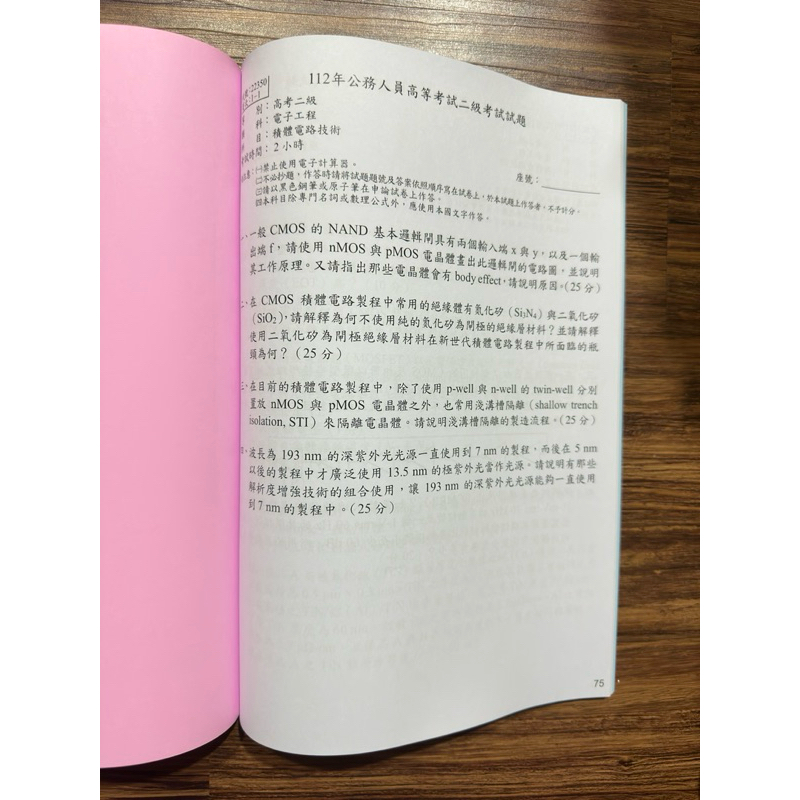 22350
1-1
112年公務人員高等考試二級考試試題
別：高考二級
科：電子工程
目：積體電路技術
時間：2小時
座號：
㈠禁止使用電子計算器。
㈡不必抄題，作答時請將試題題號及答案依照順序寫在試卷上，於本試題上作答者，不予計分。
㈢請以黑色鋼筆或原子筆在申論試卷上作答。
㈣本科目除專門名詞或數理公式外，應使用本國文字作答。
一、一般 CMOS 的 NAND 基本邏輯閘具有兩個輸入端 x 與 y，以及一個輸
出端 f，請使用 nMOS 與 pMOS 電晶體畫出此邏輯閘的電路圖，並說明
其工作原理。又請指出那些電晶體會有 body effect，請說明原因。（25 分）
二、在 CMOS 積體電路製程中常用的絕緣體有氮化矽（Si₃N₄）與二氧化矽
（SiO₂），請解釋為何不使用純的氮化矽為閘極的絕緣層材料？並請解釋
使用二氧化矽為閘極絕緣層材料在新世代積體電路製程中所面臨的瓶
頸為何？（25 分）
三、在目前的積體電路製程中，除了使用 p-well 與 n-well 的 twin-well 分別
置放 nMOS 與 pMOS 電晶體之外，也常用淺溝槽隔離（shallow trench
isolation, STI）來隔離電晶體。請說明淺溝槽隔離的製造流程。（25 分）
四、波長為 193 nm 的深紫外光光源一直使用到 7 nm 的製程，而後在 5 nm
以後的製程中才廣泛使用 13.5 nm 的極紫外光當作光源。請說明有那些
解析度增強技術的組合使用，讓 193 nm 的深紫外光光源能夠一直使用
到 7 nm 的製程中。（25 分）
75